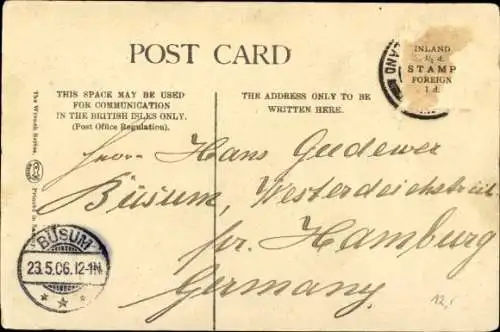 POST CARD
INLAND
½ d.
STAMP
FOREIGN
1 d.
AND
THIS SPACE MAY BE USED
FOR COMMUNICATION
IN THE BRITISH ISLES ONLY.
(Post Office Regulation).
THE ADDRESS ONLY TO BE
WRITTEN HERE.
The Wrench Series.
Printed in
Herrn Hans Gedewer
Büsum, Westerdeichstrich
pr. Hamburg
Germany.
BÜSUM
23.5.06.12-1N.
* * *
12,-